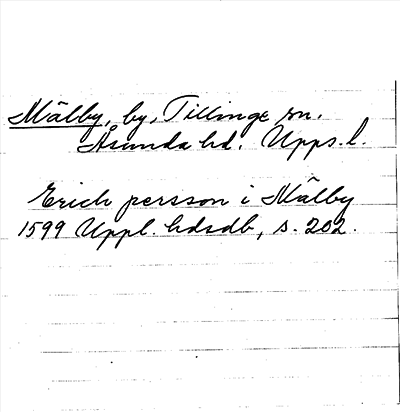 Mälby, by, Tillinge sn.
Åsunda hd. Upps. l.
Erich persson i Mälby
1599 Uppl. hdsdb, s. 202.